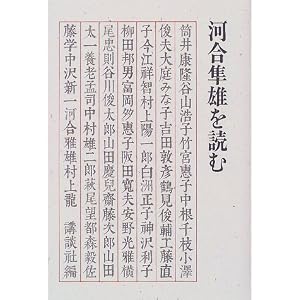 河合隼雄を読む
筒井康隆谷山浩子竹宮恵子中根千枝小澤
俊夫大庭みな子吉田敦彦鶴見俊輔工藤直
子今江祥智村上陽一郎白洲正子神沢利子
柳田邦男富岡多惠子阪田寛夫安野光雅横
尾忠則谷川俊太郎山田慶兒齋藤次郎山田
太一養老孟司中村雄二郎萩尾望都森毅佐
藤学中沢新一河合雅雄村上龍 講談社編